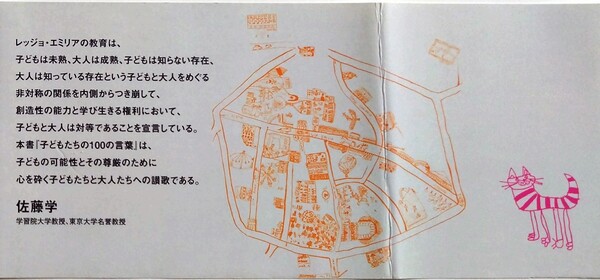 レッジョ・エミリアの教育は、
子どもは未熟、大人は成熟、子どもは知らない存在、
大人は知っている存在という子どもと大人をめぐる
非対称の関係を内側からつき崩して、
創造性の能力と学び生きる権利において、
子どもと大人は対等であることを宣言している。
本書『子どもたちの100の言葉』は、
子どもの可能性とその尊厳のために
心を砕く子どもたちと大人たちへの讃歌である。
佐藤学
学習院大学教授、東京大学名誉教授